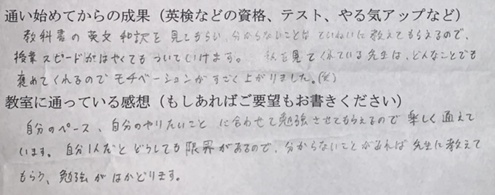 通い始めてからの成果（英検などの資格、テスト、やる気アップなど）
教科書の英文和訳を見てもらい、分からないことはていねいに教えてもらえるので、
授業スピードがはやくてもついていけます。 見てくれている先生は、どんなことでも
褒めてくれるのでモチベーションがすごく上がりました。
教室に通っている感想（もしあればご要望もお書きください）
自分のペース、自分のやりたいことに合わせて勉強させてもらえるので楽しく通えて
います。自分1人だとどうしても限界があるので、分からないことがあれば先生に教えて
もらう、勉強がはかどります。